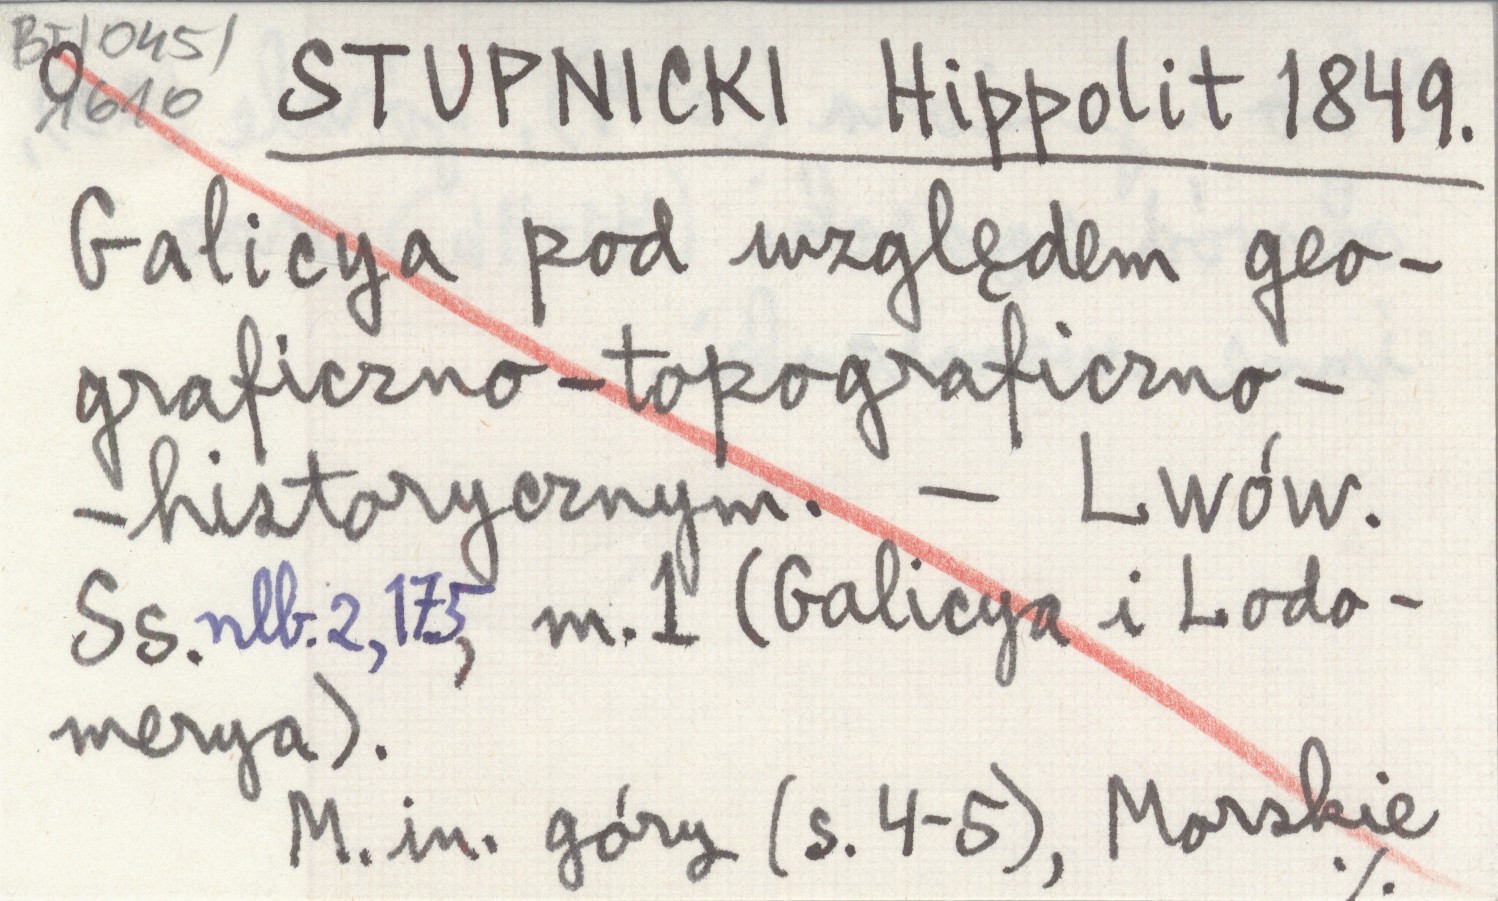 BI/045/
1610
STUPNICKI Hippolit 1849.
Galicya pod względem geo-
graficzno-topograficzno-
-historycznym. — Lwów.
Ss. nlb. 2, 175, m. 1 (Galicya i Lodo-
merya).
M. in. góry (s. 4-5), Morskie
./.